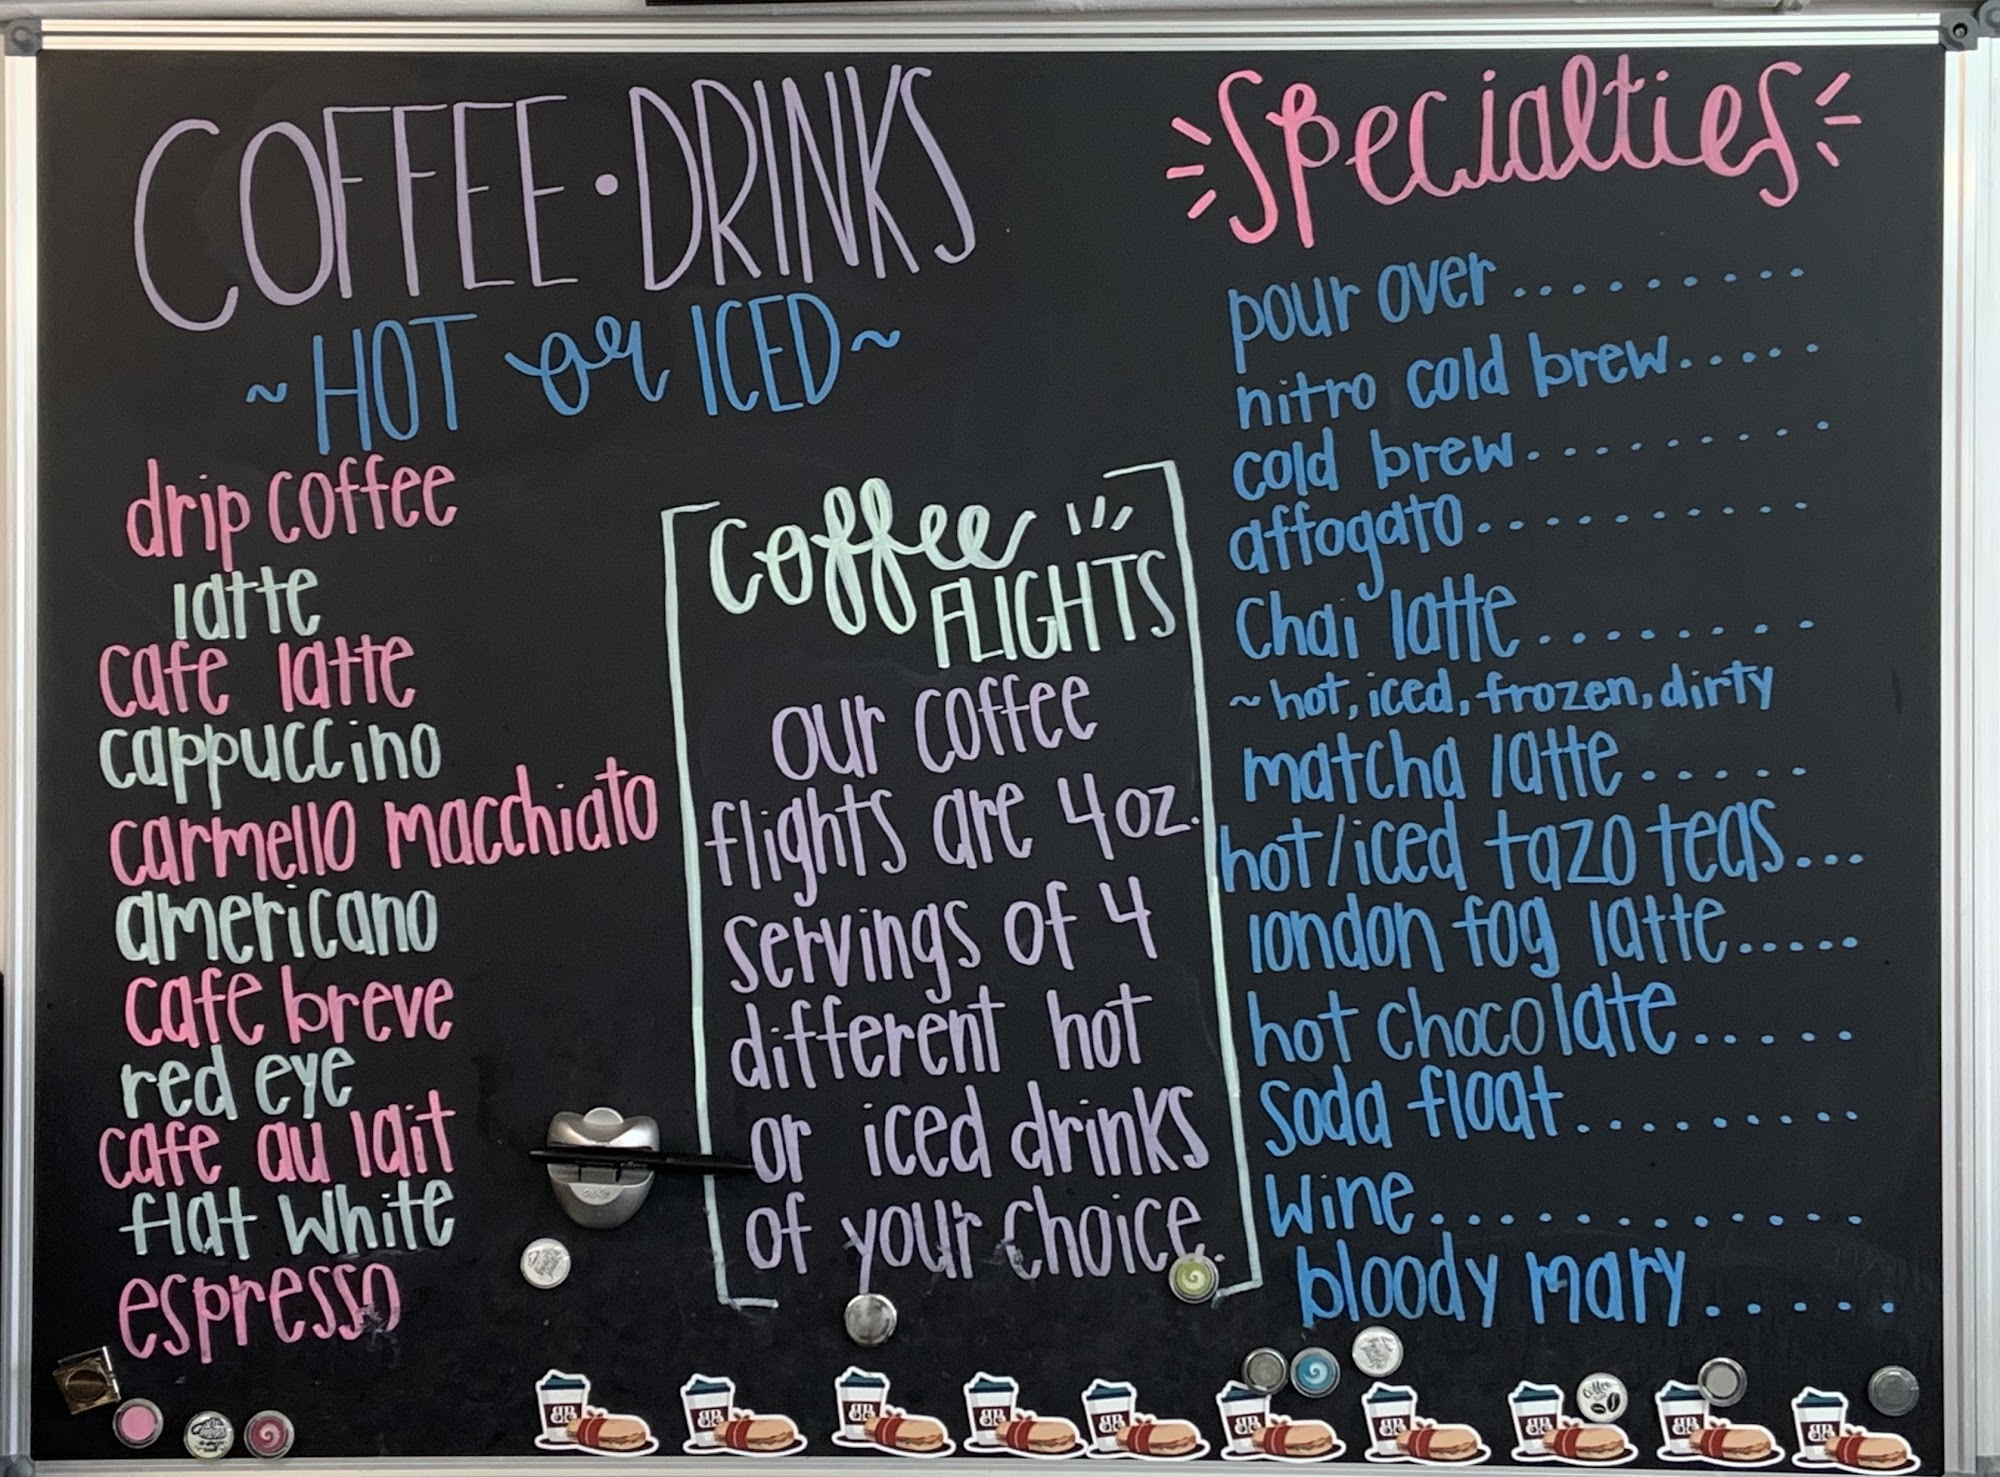 COFFEE • DRINKS
~ HOT or ICED ~
drip coffee
latte
cafe latte
cappuccino
carmello macchiato
americano
cafe breve
red eye
cafe au lait
flat white
espresso
coffee
FLIGHTS
our coffee
flights are 4oz.
servings of 4
different hot
or iced drinks
of your choice.
Specialties
pour over.........
nitro cold brew.....
cold brew.........
affogato..........
Chai latte........
~ hot, iced, frozen, dirty
matcha latte.....
hot/iced tazo teas...
london fog latte.....
hot chocolate.....
soda float.........
wine............
bloody mary.....